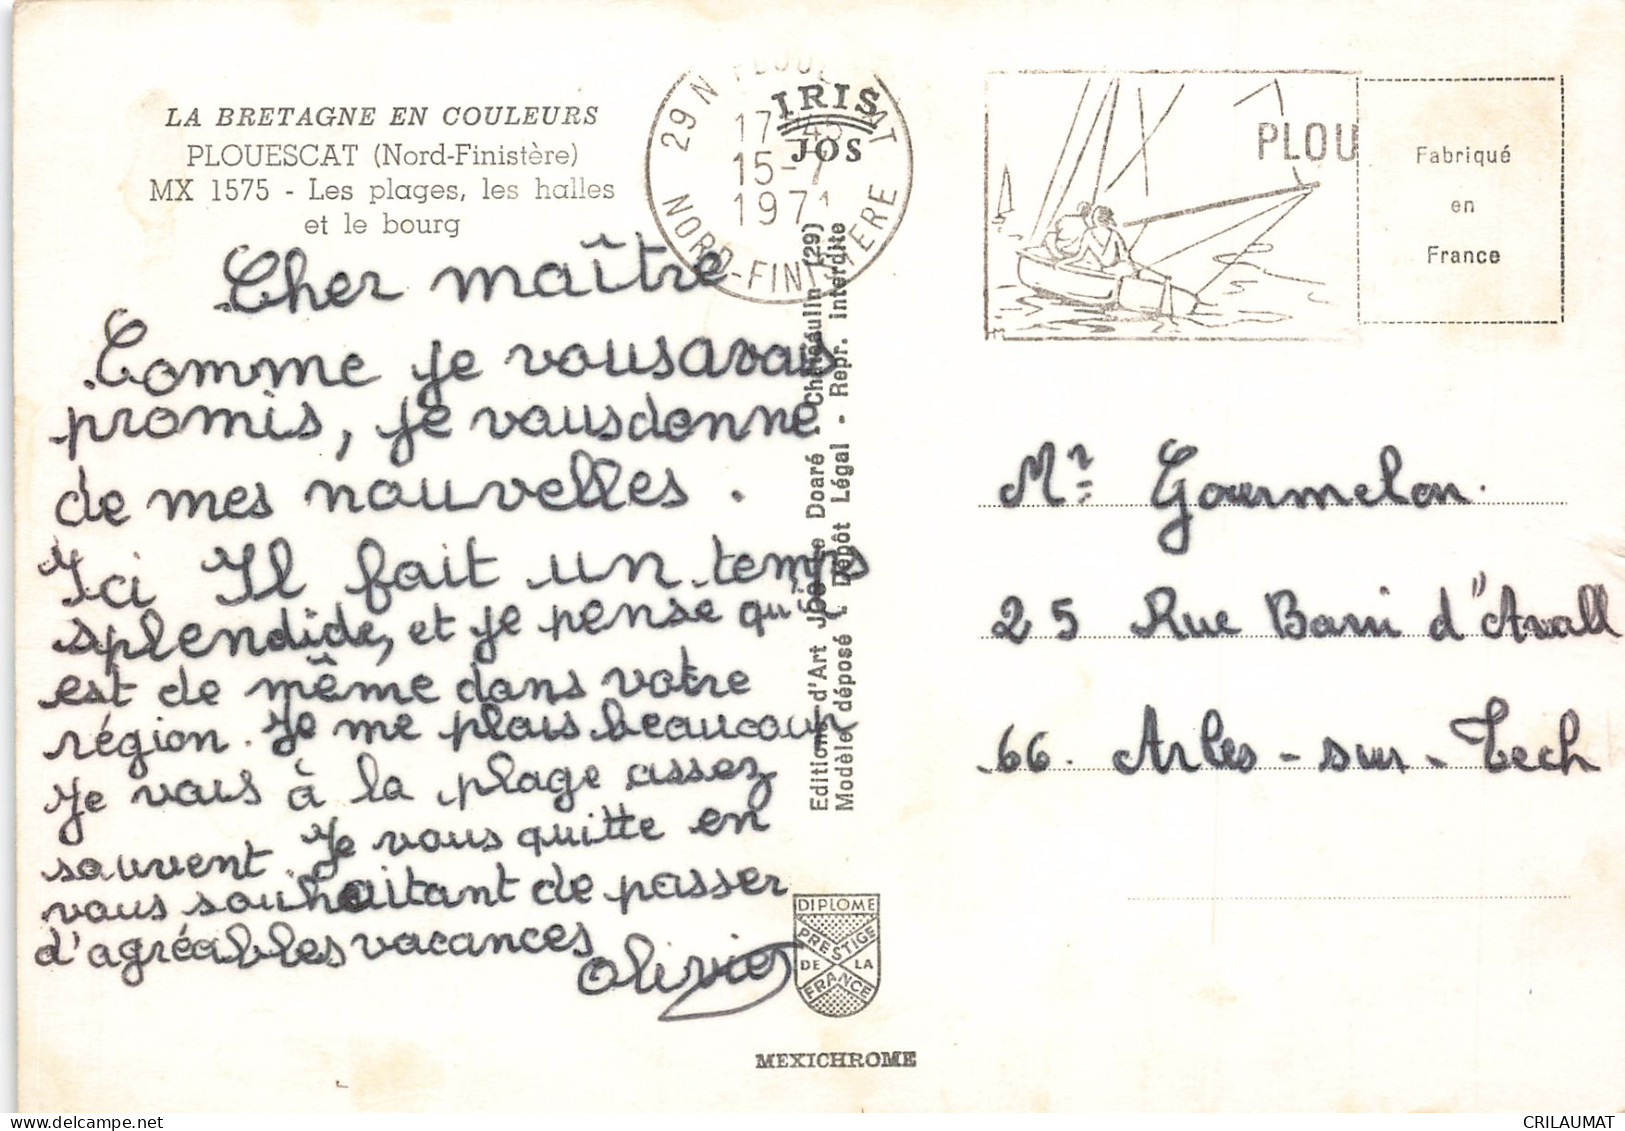 LA BRETAGNE EN COULEURS
PLOUESCAT (Nord-Finistère)
MX 1575 - Les plages, les halles
et le bourg
Cher maître
Comme je vous avais
promis, je vous donne
de mes nouvelles.
Ici Il fait un temps
splendide, et je pense qu'il
est de même dans votre
région. Je me plais beaucoup
Je vais à la plage assez
souvent. Je vous quitte en
vous souhaitant de passer
d'agréables vacances
Olivier
29 N PLOUESCAT
17 45
15-7
1971
NORD-FINISTERE
IRIS
JOS
Editions d'Art Jos Le Doaré - Chateaulin (29)
Modèle déposé - Dépôt Légal - Repr. interdite
DIPLOME
PRESTIGE
DE LA
FRANCE
MEXICHROME
PLOU
Fabriqué
en
France
Mr Gourmelon.
25 Rue Barri d'Avall
66. Arles-sur-Tech
CRILAUMAT